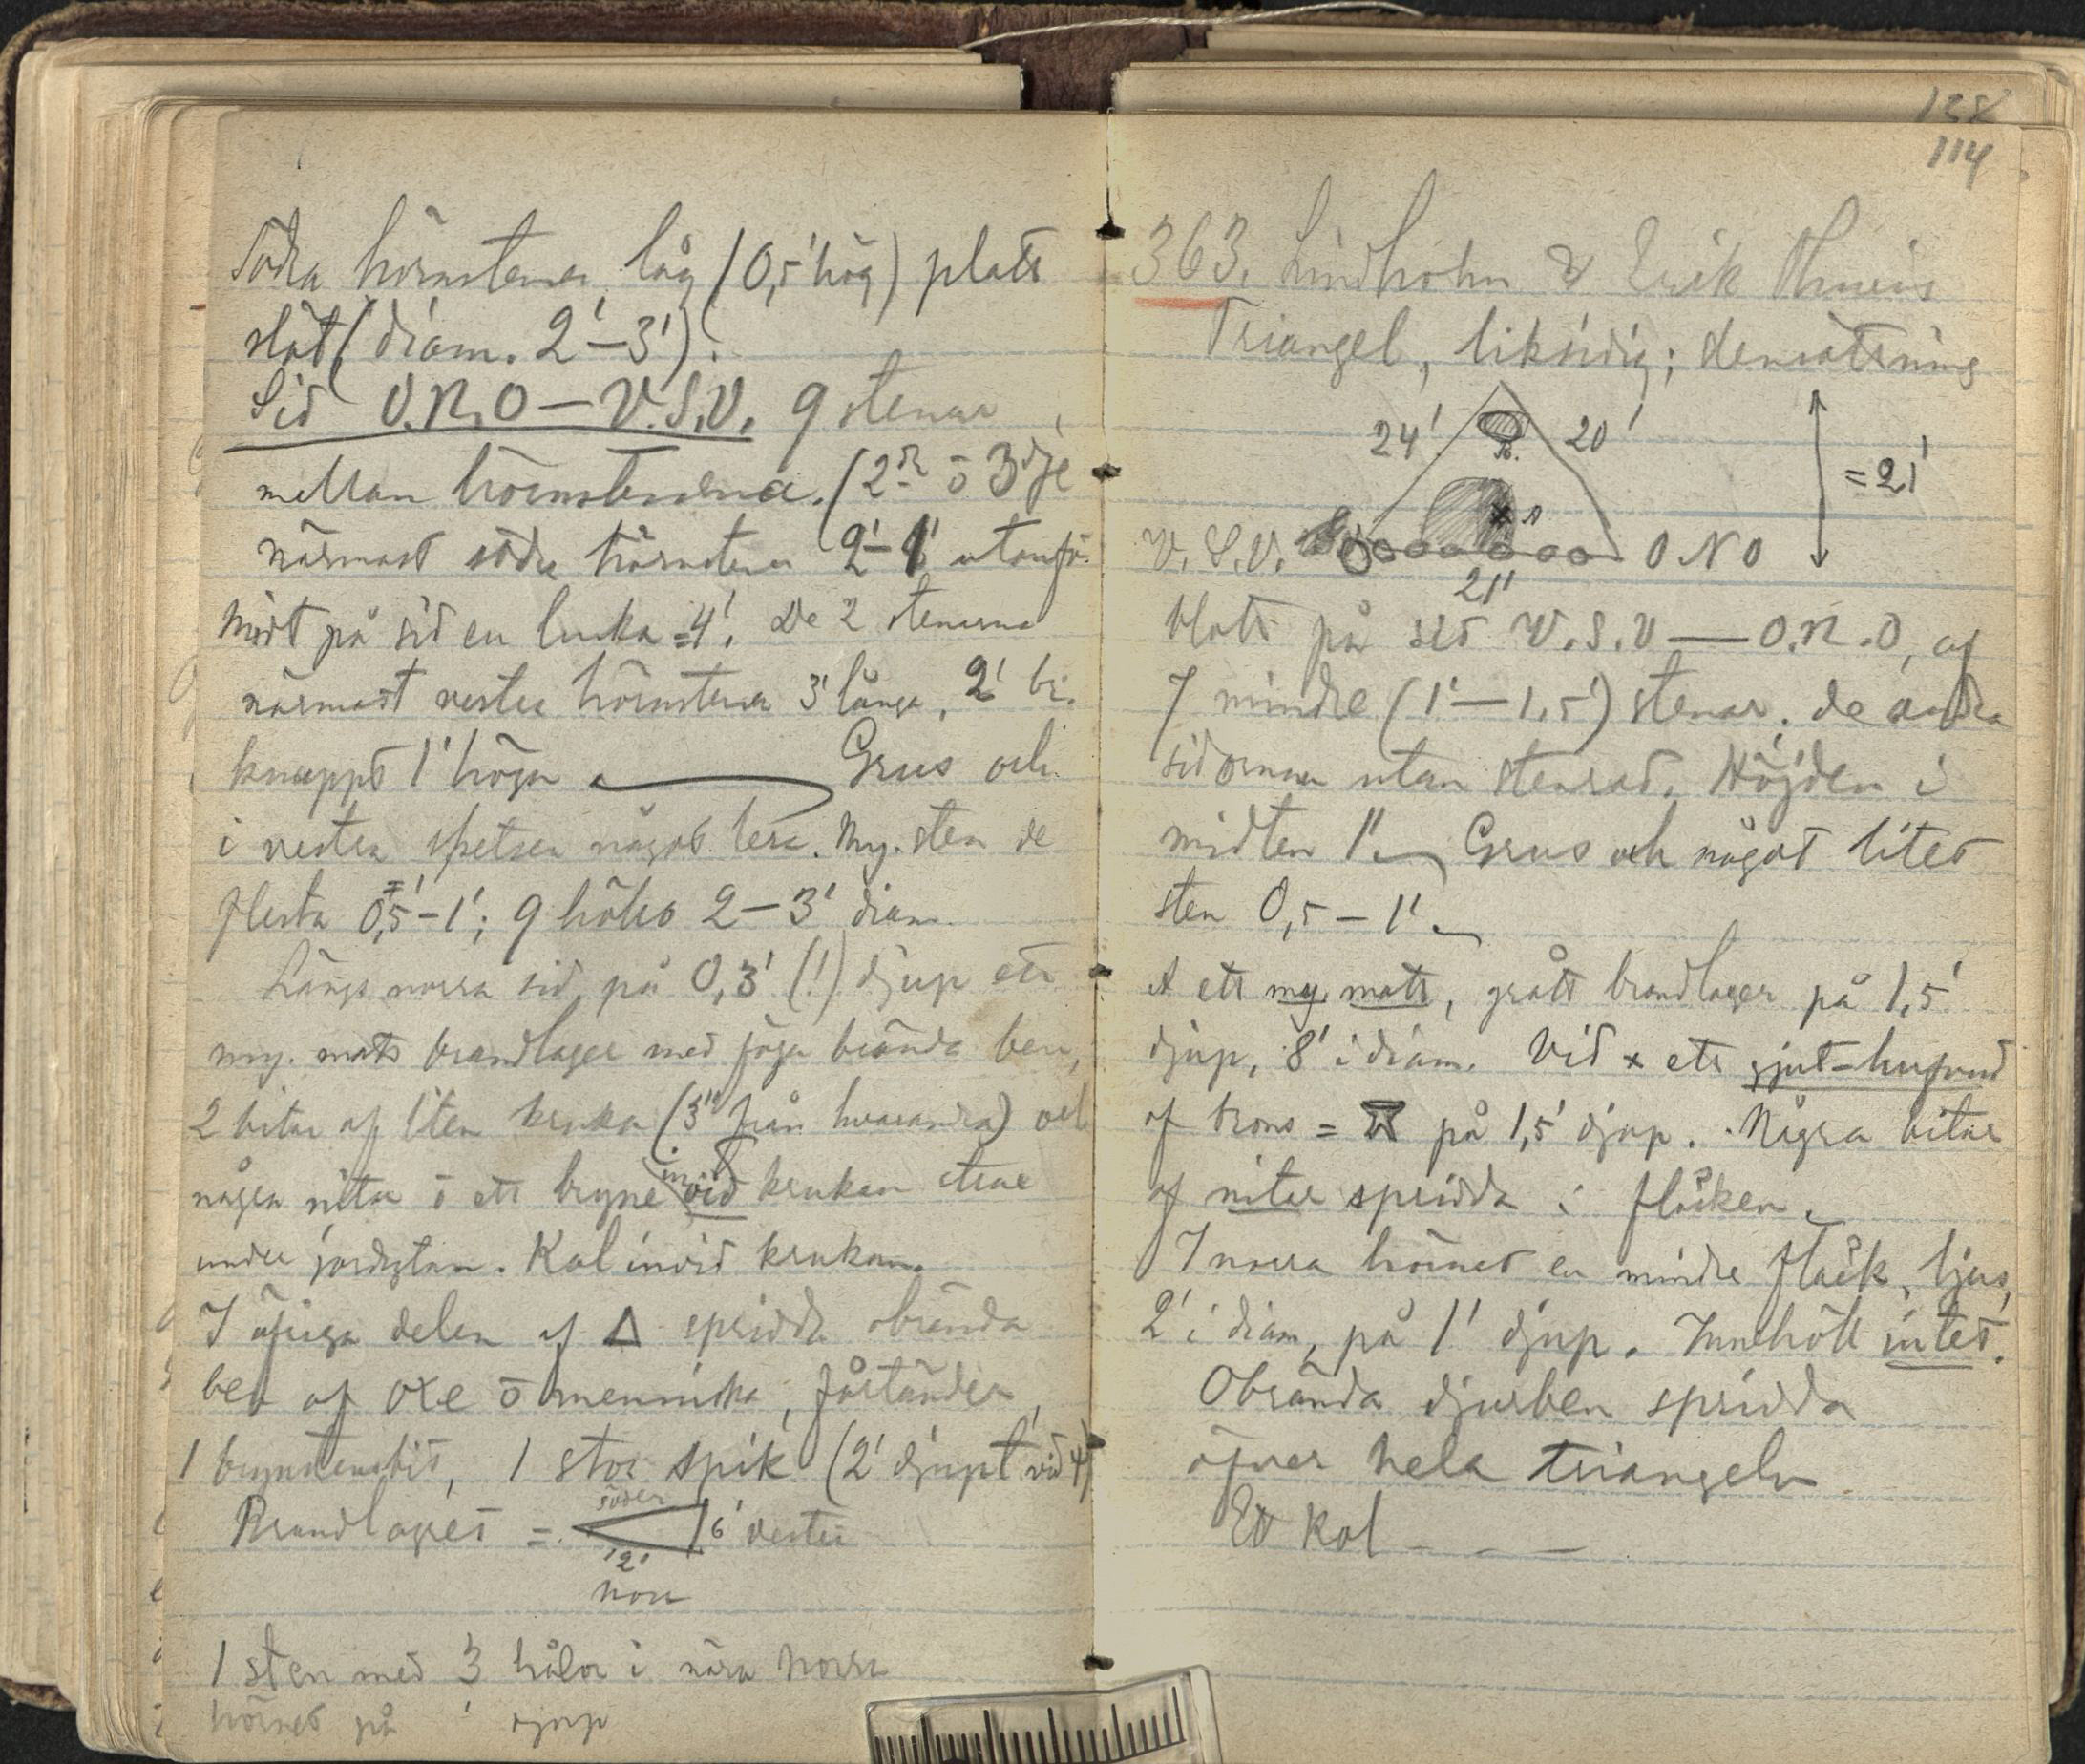 Södra hörnstenen låg (0,5' hög) platt
slät (diam. 2'–3').
Sid O.N.O – V.S.V. 9 stenar
mellan hörnstenarna. (2dr o 3dje
närmast södra hörnstenen 2'– utanför
Midt på sid en lucka = 4'. De 2 stenarna
närmast vestra hörnstenen 3' långa, 2' br.
knappt 1' höga Grus och
i vestra spetsen något lera. My. sten de
flesta 0,5'–1'; 9 hölso 2–3' diam.
Längs norra sid, på 0,3' (!) djup ett
my. matt brandlager med föga brända ben,
2 bitar af liten kruka (3" från hvarandra) och
några nitar o ett bryne invid krukan strax
under jordytan. Kol invid krukan.
I öfriga delen af Δ spridda obrända
ben af oxe o menniska, fårtänder,
1 brynstensbit, 1 stor spik (2' djupt vid 4)
Brandlagret = söder 6' vester
12'
norr
1 sten med 3 hålor i nära norra
hörnet på ' djup
138
114
363. Lindholm & Erik
Triangel, liksidig; stensättning
24' 20'
B.
= 21'
A
V.S.V. O N O
21'
blott på sid V.S.V — O.N.O, af
7 mindre (1'–1,5') stenar. de andra
sidorna utan stenrad. Höjden i
midten 1'. Grus och något litet
sten 0,5 – 1'.
A ett my. matt, grått brandlager på 1,5'
djup, 8' i diam. Vid x ett sjut-hufvud
af brons = på 1,5' djup. Några bitar
af nitar spridda i fläcken.
I norra hörnet en mindre fläck, ljus,
2' i diam, på 1' djup. Innehöll intet.
Obrända djurben spridda
öfver hela triangeln
Ett kol – – –